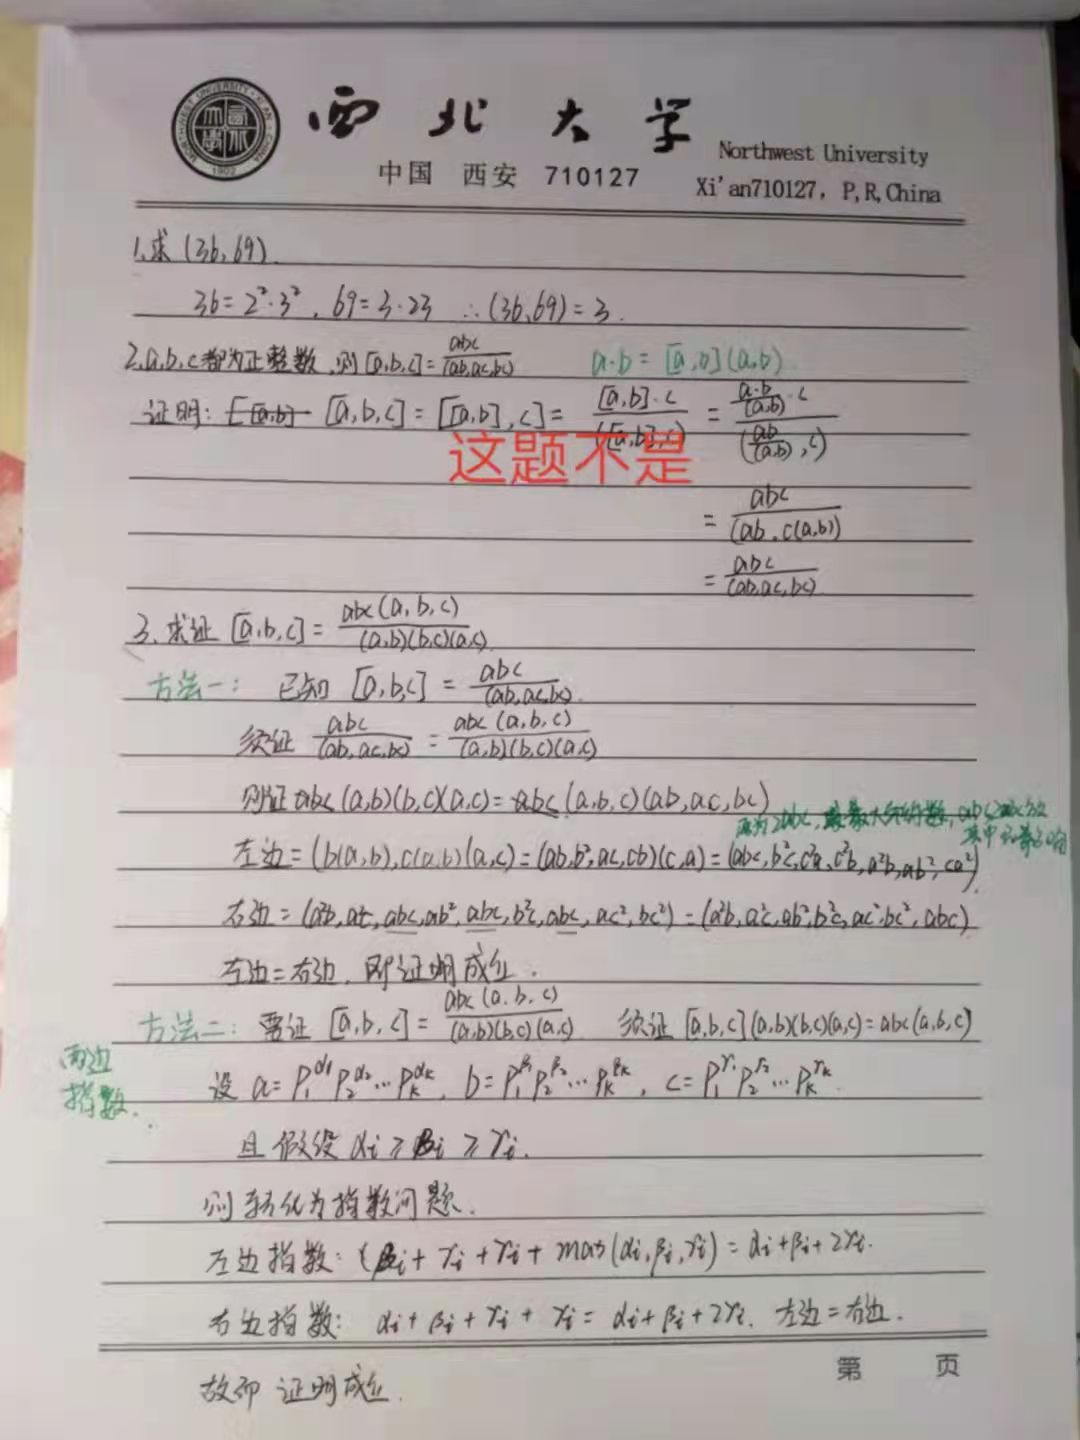 西北大学
Northwest University
中国 西安 710127
Xi'an710127, P,R,China
1.求(36,69).
36=2²·3², 69=3·23 ∴(36,69)=3.
2.a,b,c都为正整数,则[a,b,c]=abc/(ab,ac,bc) a·b=[a,b](a,b)
证明: [a,b,c]=[[a,b],c]=[a,b]·c/([a,b],c)=(a·b/(a,b)·c)/(ab/(a,b),c)
这题不是
=abc/(ab,c(a,b))
=abc/(ab,ac,bc)
3.求证[a,b,c]=abc(a,b,c)/(a,b)(b,c)(a,c)
方法一: 已知[a,b,c]=abc/(ab,ac,bc)
须证 abc/(ab,ac,bc)=abc(a,b,c)/(a,b)(b,c)(a,c)
则证abc(a,b)(b,c)(a,c)=abc(a,b,c)(ab,ac,bc)
左边=(b(a,b),c(a,b)(a,c)=(ab,b²,ac,cb)(c,a)=(abc,b²c,c²a,c²b,a²b,ab²,ca²)
右边=(a²b,a²c,abc,ab²,abc,b²c,abc,ac²,bc²)=(a²b,a²c,ab²,b²c,ac²,bc²,abc)
左边=右边,即证明成立.
方法二: 需证[a,b,c]=abc(a,b,c)/(a,b)(b,c)(a,c) 须证[a,b,c](a,b)(b,c)(a,c)=abc(a,b,c)
两边
指数.
设a=P₁^α₁P₂^α₂…Pₖ^αₖ, b=P₁^β₁P₂^β₂…Pₖ^βₖ, c=P₁^γ₁P₂^γ₂…Pₖ^γₖ.
且假设αi≥βi≥γi.
则转化为指数问题.
左边指数: βi+γi+γi+max(αi,βi,γi)=αi+βi+2γi.
右边指数: αi+βi+γi+γi=αi+βi+2γi. 左边=右边.
故即证明成立.
第 页